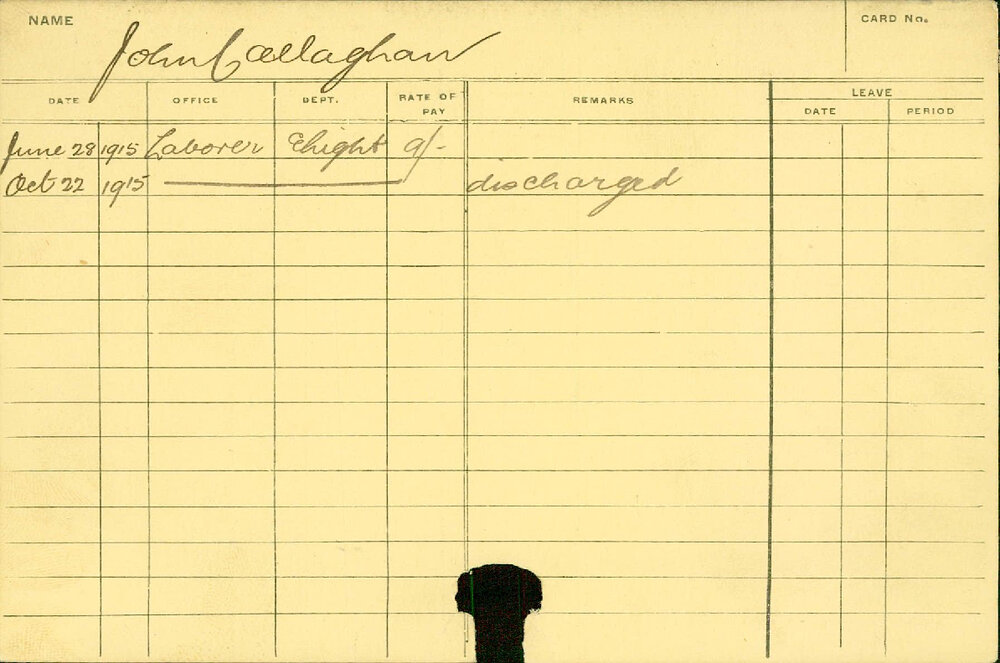 NAME John Callaghan CARD No.
DATE OFFICE DEPT. RATE OF PAY REMARKS LEAVE
DATE PERIOD
June 28 1915 Laborer 9/-
Oct 22 1915 discharged